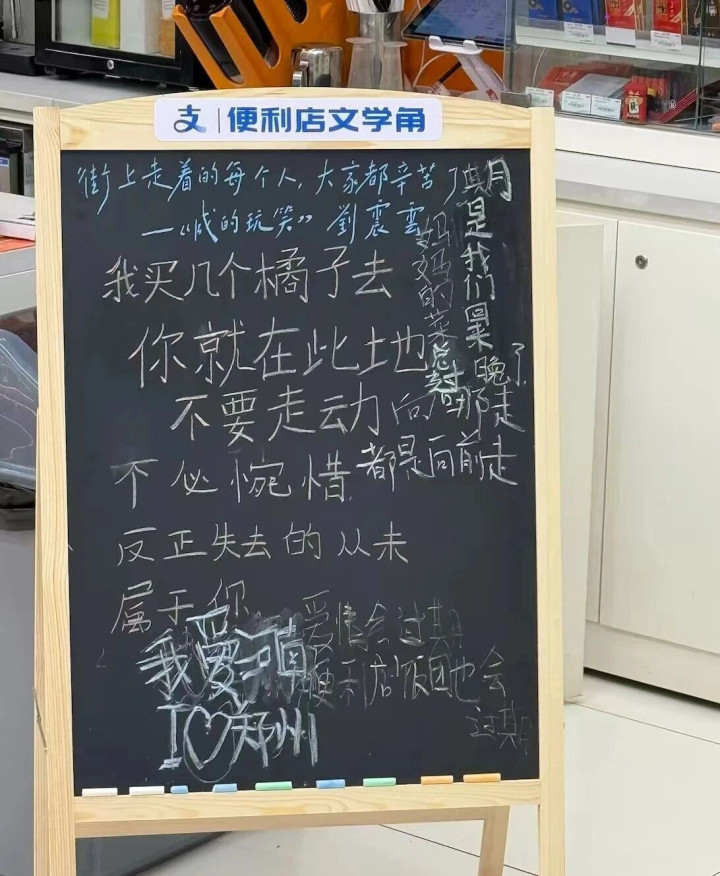 支 | 便利店文学角
街上走着的每个人,大家都辛苦了
—《咸的玩笑》 劉震雲
期是我们
来晚了
妈妈的菜
我买几个橘子去
你就在此地
不要走动
向 那走
都是向前走
不必惋惜
反正失去的从未
属于你。
爱情会过期
便利店饭团也会
过期
我爱
I♡郑州